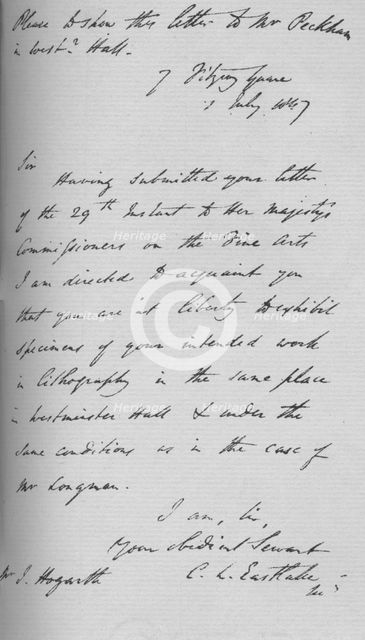 Please to show this letter to Mr Peckham
in West.r Hall.
7 Fitzroy Square
1 July 1847
Sir
Having submitted your letter
of the 29th Instant to Her Majesty's
Commissioners on the Fine Arts
I am directed to acquaint you
that you are at liberty to exhibit
specimens of your intended work
in lithography in the same place
in Westminster Hall & under the
same conditions as in the case of
Mr Longman.
I am, Sir,
Your obedient Servant
C. L. Eastlake
Mr J. Hogarth
Heritage Heritage
Heritage Heritage
Heritage Heritage